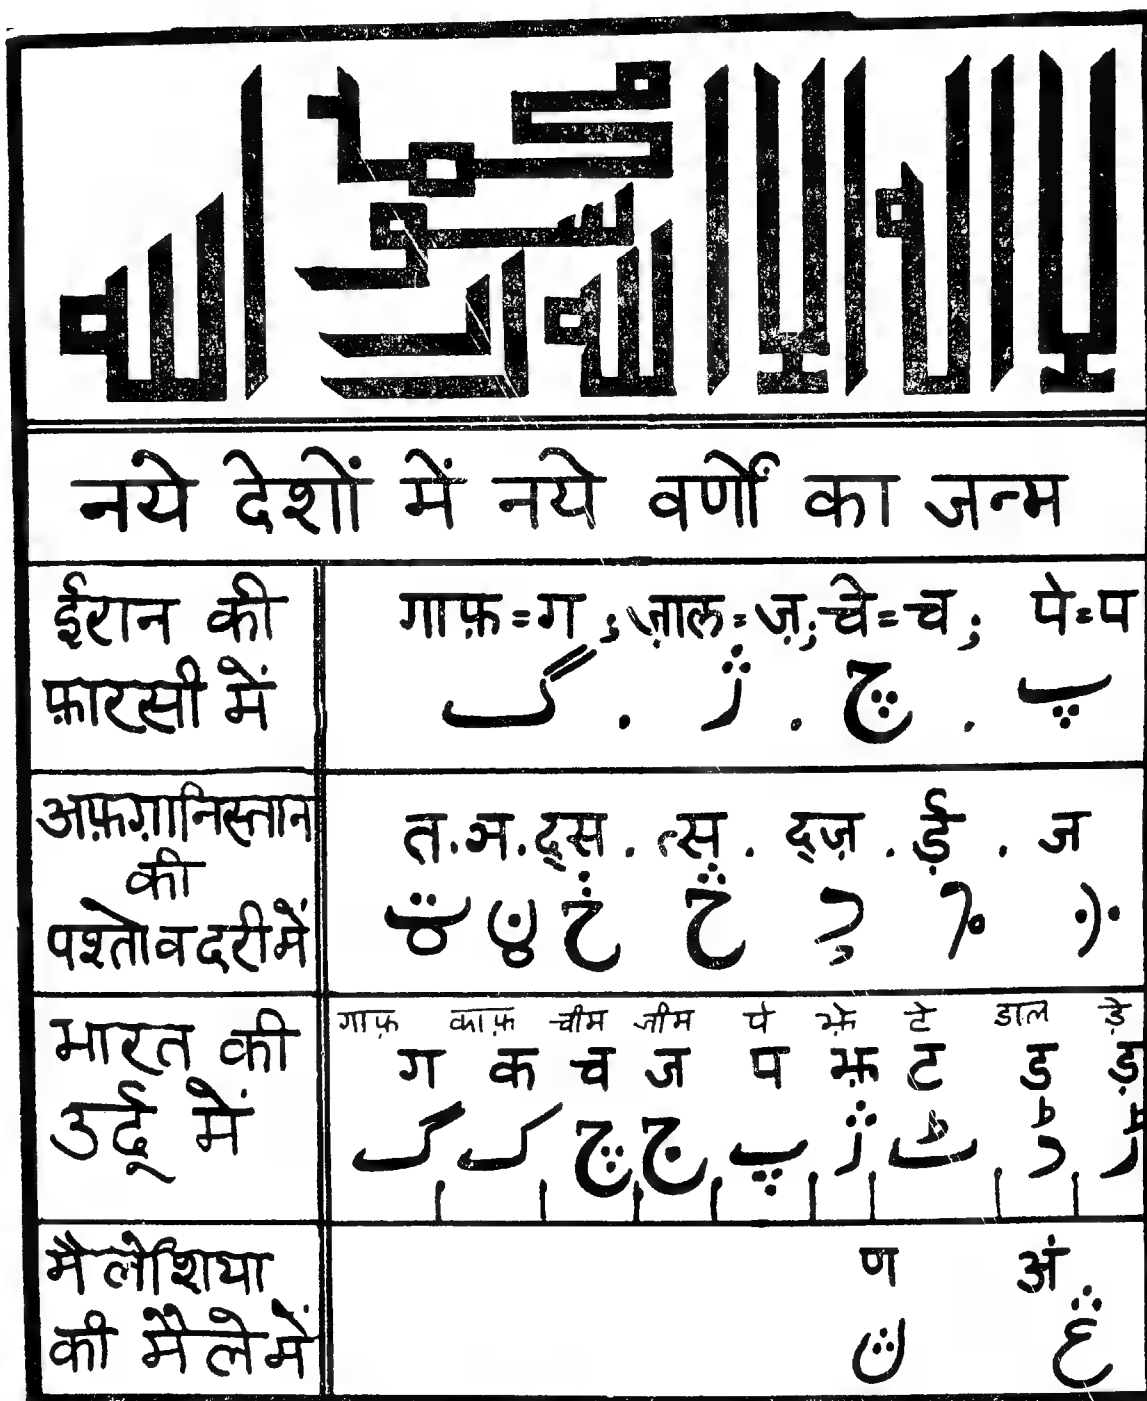 لا اله الا الله محمد رسول الله
नये देशों में नये वर्णों का जन्म
ईरान की
फ़ारसी में
गाफ़=ग ; ज़ाल=ज़; चे=च; पे=प
گ . ژ . چ . پ
अफ़ग़ानिस्तान
की
पश्तो व दरी में
त . ञ . द्स . त्स . द्ज़ . ई़ . ज
भारत की
उर्दू में
गाफ़ काफ़ चीम जीम पे झे़ टे डाल ड़े
ग क च ज प झ़ ट ड ड़
گ ک چ ج پ ژ ٹ ڈ ڑ
मैलेशिया
की मैले में
ण अं
ڽ ڠ